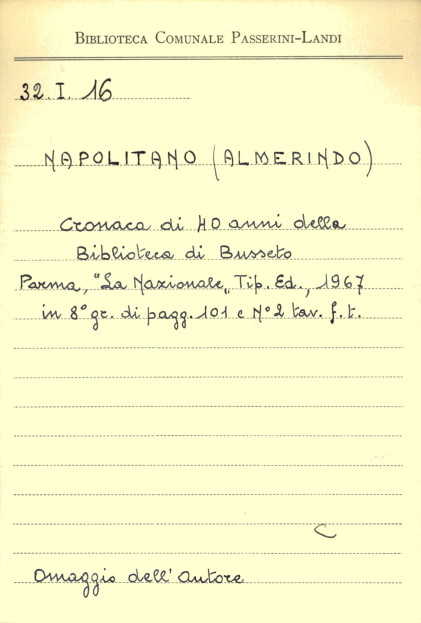 BIBLIOTECA COMUNALE PASSERINI-LANDI
32.I.16
NAPOLITANO (ALMERINDO)
Cronaca di 40 anni della
Biblioteca di Busseto
Parma, "La Nazionale„ Tip. Ed., 1967
in 8° gr. di pagg. 101 e N° 2 tav. f.t.
C
Omaggio dell'Autore